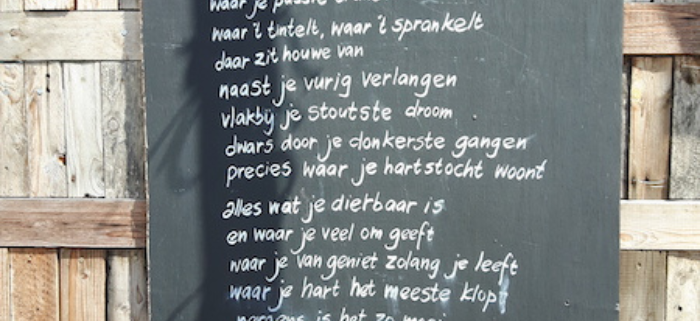 waar je passie
waar 't tintelt, waar 't sprankelt
daar zit houwe van
naast je vurig verlangen
vlakbij je stoutste droom
dwars door je donkerste gangen
precies waar je hartstocht woont
alles wat je dierbaar is
en waar je veel om geeft
waar je van geniet zolang je leeft
waar je hart het meeste klopt
nergens is het zo mooi